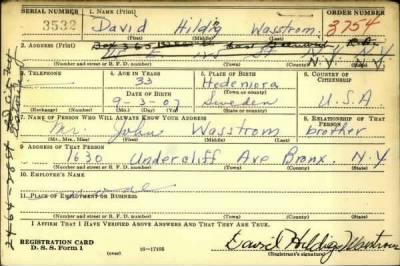 SERIAL NUMBER 1. NAME (Print) ORDER NUMBER
3532 David Hildig Wasstrom 3754
(First) (Middle) (Last)
2. ADDRESS (Print)
N.Y. N.Y.
(Number and street or R. F. D. number) (Town) (County) (State)
3. TELEPHONE 4. AGE IN YEARS 5. PLACE OF BIRTH 6. COUNTRY OF CITIZENSHIP
33 Hedemora
DATE OF BIRTH (Town or county)
9-3-07 Sweden U.S.A
(Exchange) (Number) (Mo.) (Day) (Yr.) (State or country)
7. NAME OF PERSON WHO WILL ALWAYS KNOW YOUR ADDRESS 8. RELATIONSHIP OF THAT PERSON
Mr. John Wasstrom brother
(Mr., Mrs., Miss) (First) (Middle) (Last)
9. ADDRESS OF THAT PERSON
1630 Undercliff Ave Bronx N.Y
(Number and street or R. F. D. number) (Town) (County) (State)
10. EMPLOYER'S NAME
11. PLACE OF EMPLOYMENT OR BUSINESS
(Number and street or R. F. D. number) (Town) (County) (State)
I AFFIRM THAT I HAVE VERIFIED ABOVE ANSWERS AND THAT THEY ARE TRUE.
REGISTRATION CARD
D. S. S. Form 1
(over) 16-17105
David Hildig Wasstrom
(Registrant's signature)